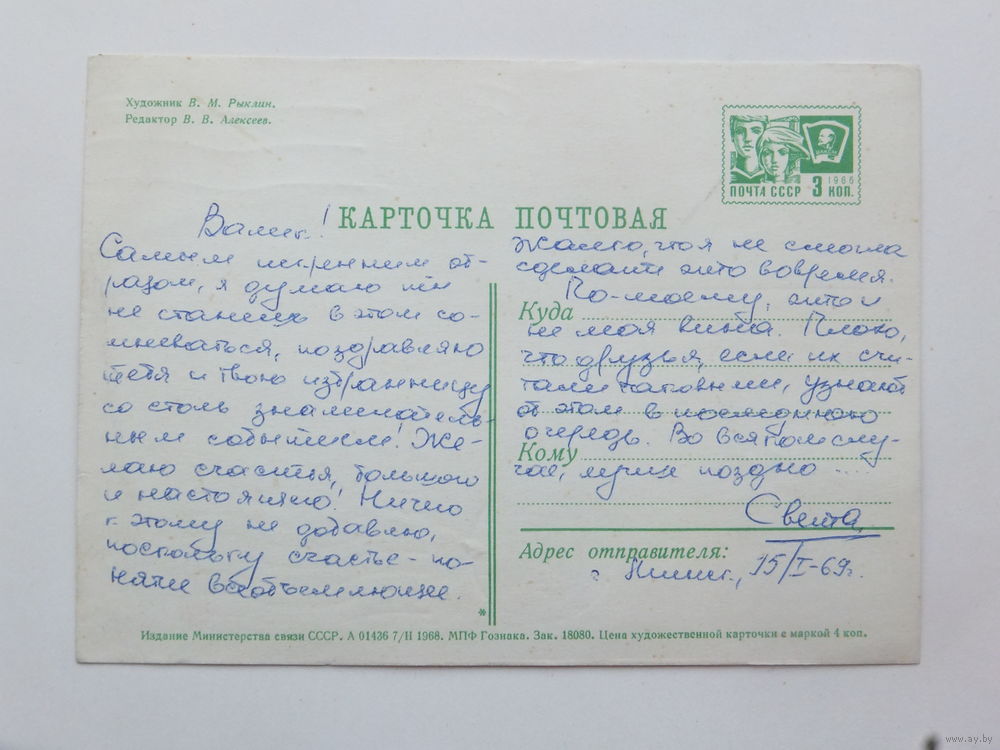 Художник В. М. Рыклин.
Редактор В. В. Алексеев.
1966
ПОЧТА СССР 3 КОП.
КАРТОЧКА ПОЧТОВАЯ
Валик!
Самым искренним об-
разом, я думаю
не станешь в этом со-
мневаться, поздравляю
тебя и твою избранницу
со столь знаменатель-
ным событием! Же-
лаю счастья, большого
и настоящего! Ничего
к этому не добавлю,
поскольку счастье - по-
нятие всеобъемлющее.
Жалко, что я не смогла
сделать это вовремя.
По-моему, это и
не моя вина. Плохо,
что друзья, если их счи-
тали таковыми, узнают
об этом в последнюю
очередь. Во всяком слу-
чае, лучше поздно ....
Света,
Куда
Кому
Адрес отправителя:
г. Минск, 15/I-69г.
*
Издание Министерства связи СССР. А 01436 7/II 1968. МПФ Гознака. Зак. 18080. Цена художественной карточки с маркой 4 коп.
www.ay.by